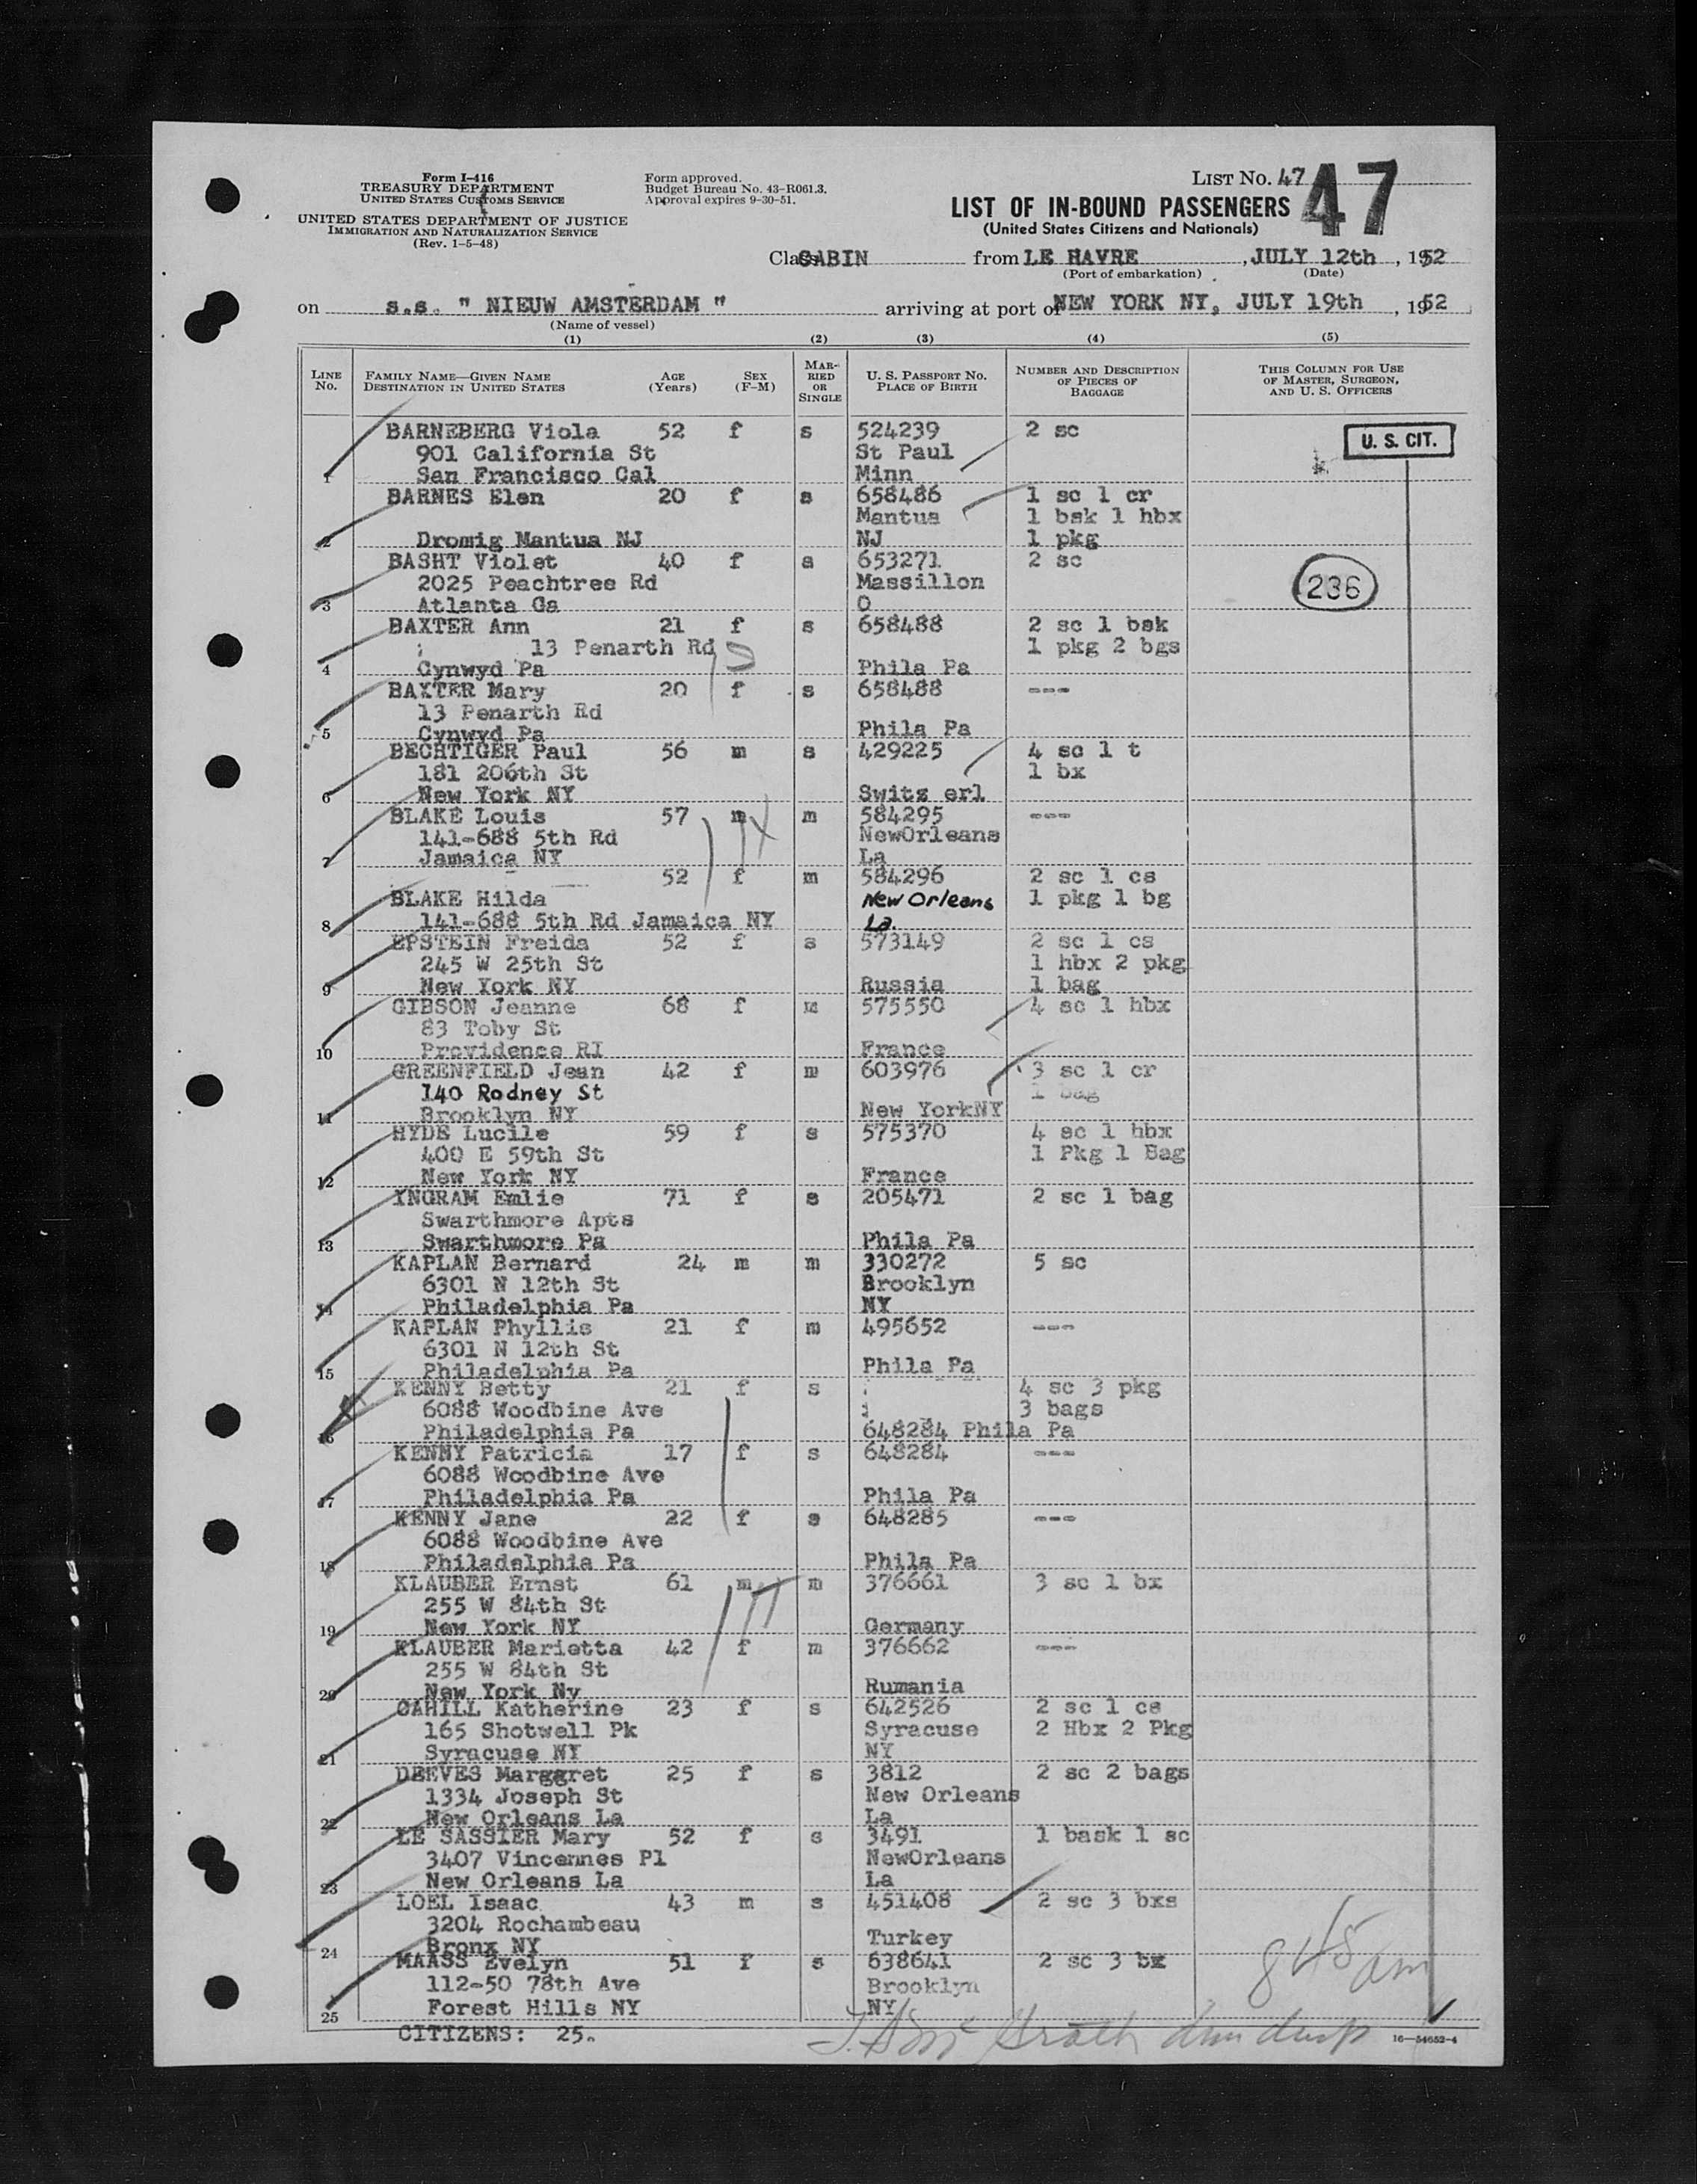 Form I-416
TREASURY DEPARTMENT
UNITED STATES CUSTOMS SERVICE
UNITED STATES DEPARTMENT OF JUSTICE
IMMIGRATION AND NATURALIZATION SERVICE
(Rev. 1-5-48)
Form approved.
Budget Bureau No. 43-R061.3.
Approval expires 9-30-51.
LIST No. 47 47
LIST OF IN-BOUND PASSENGERS
(United States Citizens and Nationals)
Class CABIN from LE HAVRE, JULY 12th, 1952
(Port of embarkation) (Date)
on s.s. " NIEUW AMSTERDAM " arriving at port of NEW YORK NY, JULY 19th, 1952
(Name of vessel)
(1) (2) (3) (4) (5)
LINE No.
FAMILY NAME—GIVEN NAME
DESTINATION IN UNITED STATES
AGE (Years)
SEX (F-M)
MARRIED OR SINGLE
U. S. PASSPORT NO.
PLACE OF BIRTH
NUMBER AND DESCRIPTION OF PIECES OF BAGGAGE
THIS COLUMN FOR USE OF MASTER, SURGEON, AND U. S. OFFICERS
U. S. CIT.
BARNEBERG Viola 52 f s 524239 2 sc
901 California St St Paul
1 San Francisco Cal Minn
BARNES Elen 20 f s 658486 1 sc 1 cr
Mantua 1 bsk 1 hbx
2 Dromig Mantua NJ NJ 1 pkg
BASHT Violet 40 f s 653271 2 sc
2025 Peachtree Rd Massillon 236
3 Atlanta Ga O
BAXTER Ann 21 f s 658488 2 sc 1 bsk
13 Penarth Rd 1 pkg 2 bgs
4 Cynwyd Pa Phila Pa
BAXTER Mary 20 f s 658488 ---
13 Penarth Rd
5 Cynwyd Pa Phila Pa
BECHTIGER Paul 56 m s 429225 4 sc 1 t
181 206th St 1 bx
6 New York NY Switz erl
BLAKE Louis 57 m m 584295 ---
141-688 5th Rd NewOrleans
7 Jamaica NY La
52 f m 584296 2 sc 1 cs
BLAKE Hilda New Orleans 1 pkg 1 bg
8 141-688 5th Rd Jamaica NY La.
EPSTEIN Freida 52 f s 573149 2 sc 1 cs
245 W 25th St 1 hbx 2 pkg
9 New York NY Russia 1 bag
GIBSON Jeanne 68 f m 575550 4 sc 1 hbx
83 Toby St
10 Providence RI France
GREENFIELD Jean 42 f m 603976 3 sc 1 cr
140 Rodney St 1 bag
11 Brooklyn NY New YorkNY
HYDE Lucile 59 f s 575370 4 sc 1 hbx
400 E 59th St 1 Pkg 1 Bag
12 New York NY France
YNGRAM Emlie 71 f s 205471 2 sc 1 bag
Swarthmore Apts
13 Swarthmore Pa Phila Pa
KAPLAN Bernard 24 m m 330272 5 sc
6301 N 12th St Brooklyn
14 Philadelphia Pa NY
KAPLAN Phyllis 21 f m 495652 ---
6301 N 12th St
15 Philadelphia Pa Phila Pa
KENNY Betty 21 f s 4 sc 3 pkg
6088 Woodbine Ave 3 bags
16 Philadelphia Pa 648284 Phila Pa
KENNY Patricia 17 f s 648284 ---
6088 Woodbine Ave
17 Philadelphia Pa Phila Pa
KENNY Jane 22 f s 648285 ---
6088 Woodbine Ave
18 Philadelphia Pa Phila Pa
KLAUBER Ernst 61 m m 376661 3 sc 1 bx
255 W 84th St
19 New York NY Germany
KLAUBER Marietta 42 f m 376662 ---
255 W 84th St
20 New York Ny Rumania
CAHILL Katherine 23 f s 642526 2 sc 1 cs
165 Shotwell Pk Syracuse 2 Hbx 2 Pkg
21 Syracuse NY NY
DEEVES Marggret 25 f s 3812 2 sc 2 bags
1334 Joseph St New Orleans
22 New Orleans La La
LE SASSIER Mary 52 f s 3491 1 bask 1 sc
3407 Vincennes Pl NewOrleans
23 New Orleans La La
LOEL Isaac 43 m s 451408 2 sc 3 bxs
3204 Rochambeau
24 Bronx NY Turkey
MAASS Evelyn 51 f s 638641 2 sc 3 bx
112-50 78th Ave Brooklyn 845 am
25 Forest Hills NY NY
CITIZENS: 25. 16—54652-4